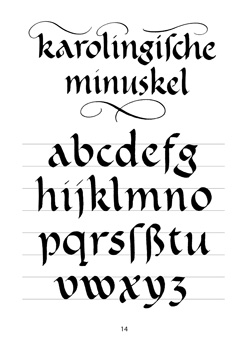 karolingiſche
minuskel
abcdefg
hijklmno
pqrsſßtu
vwxyz
14